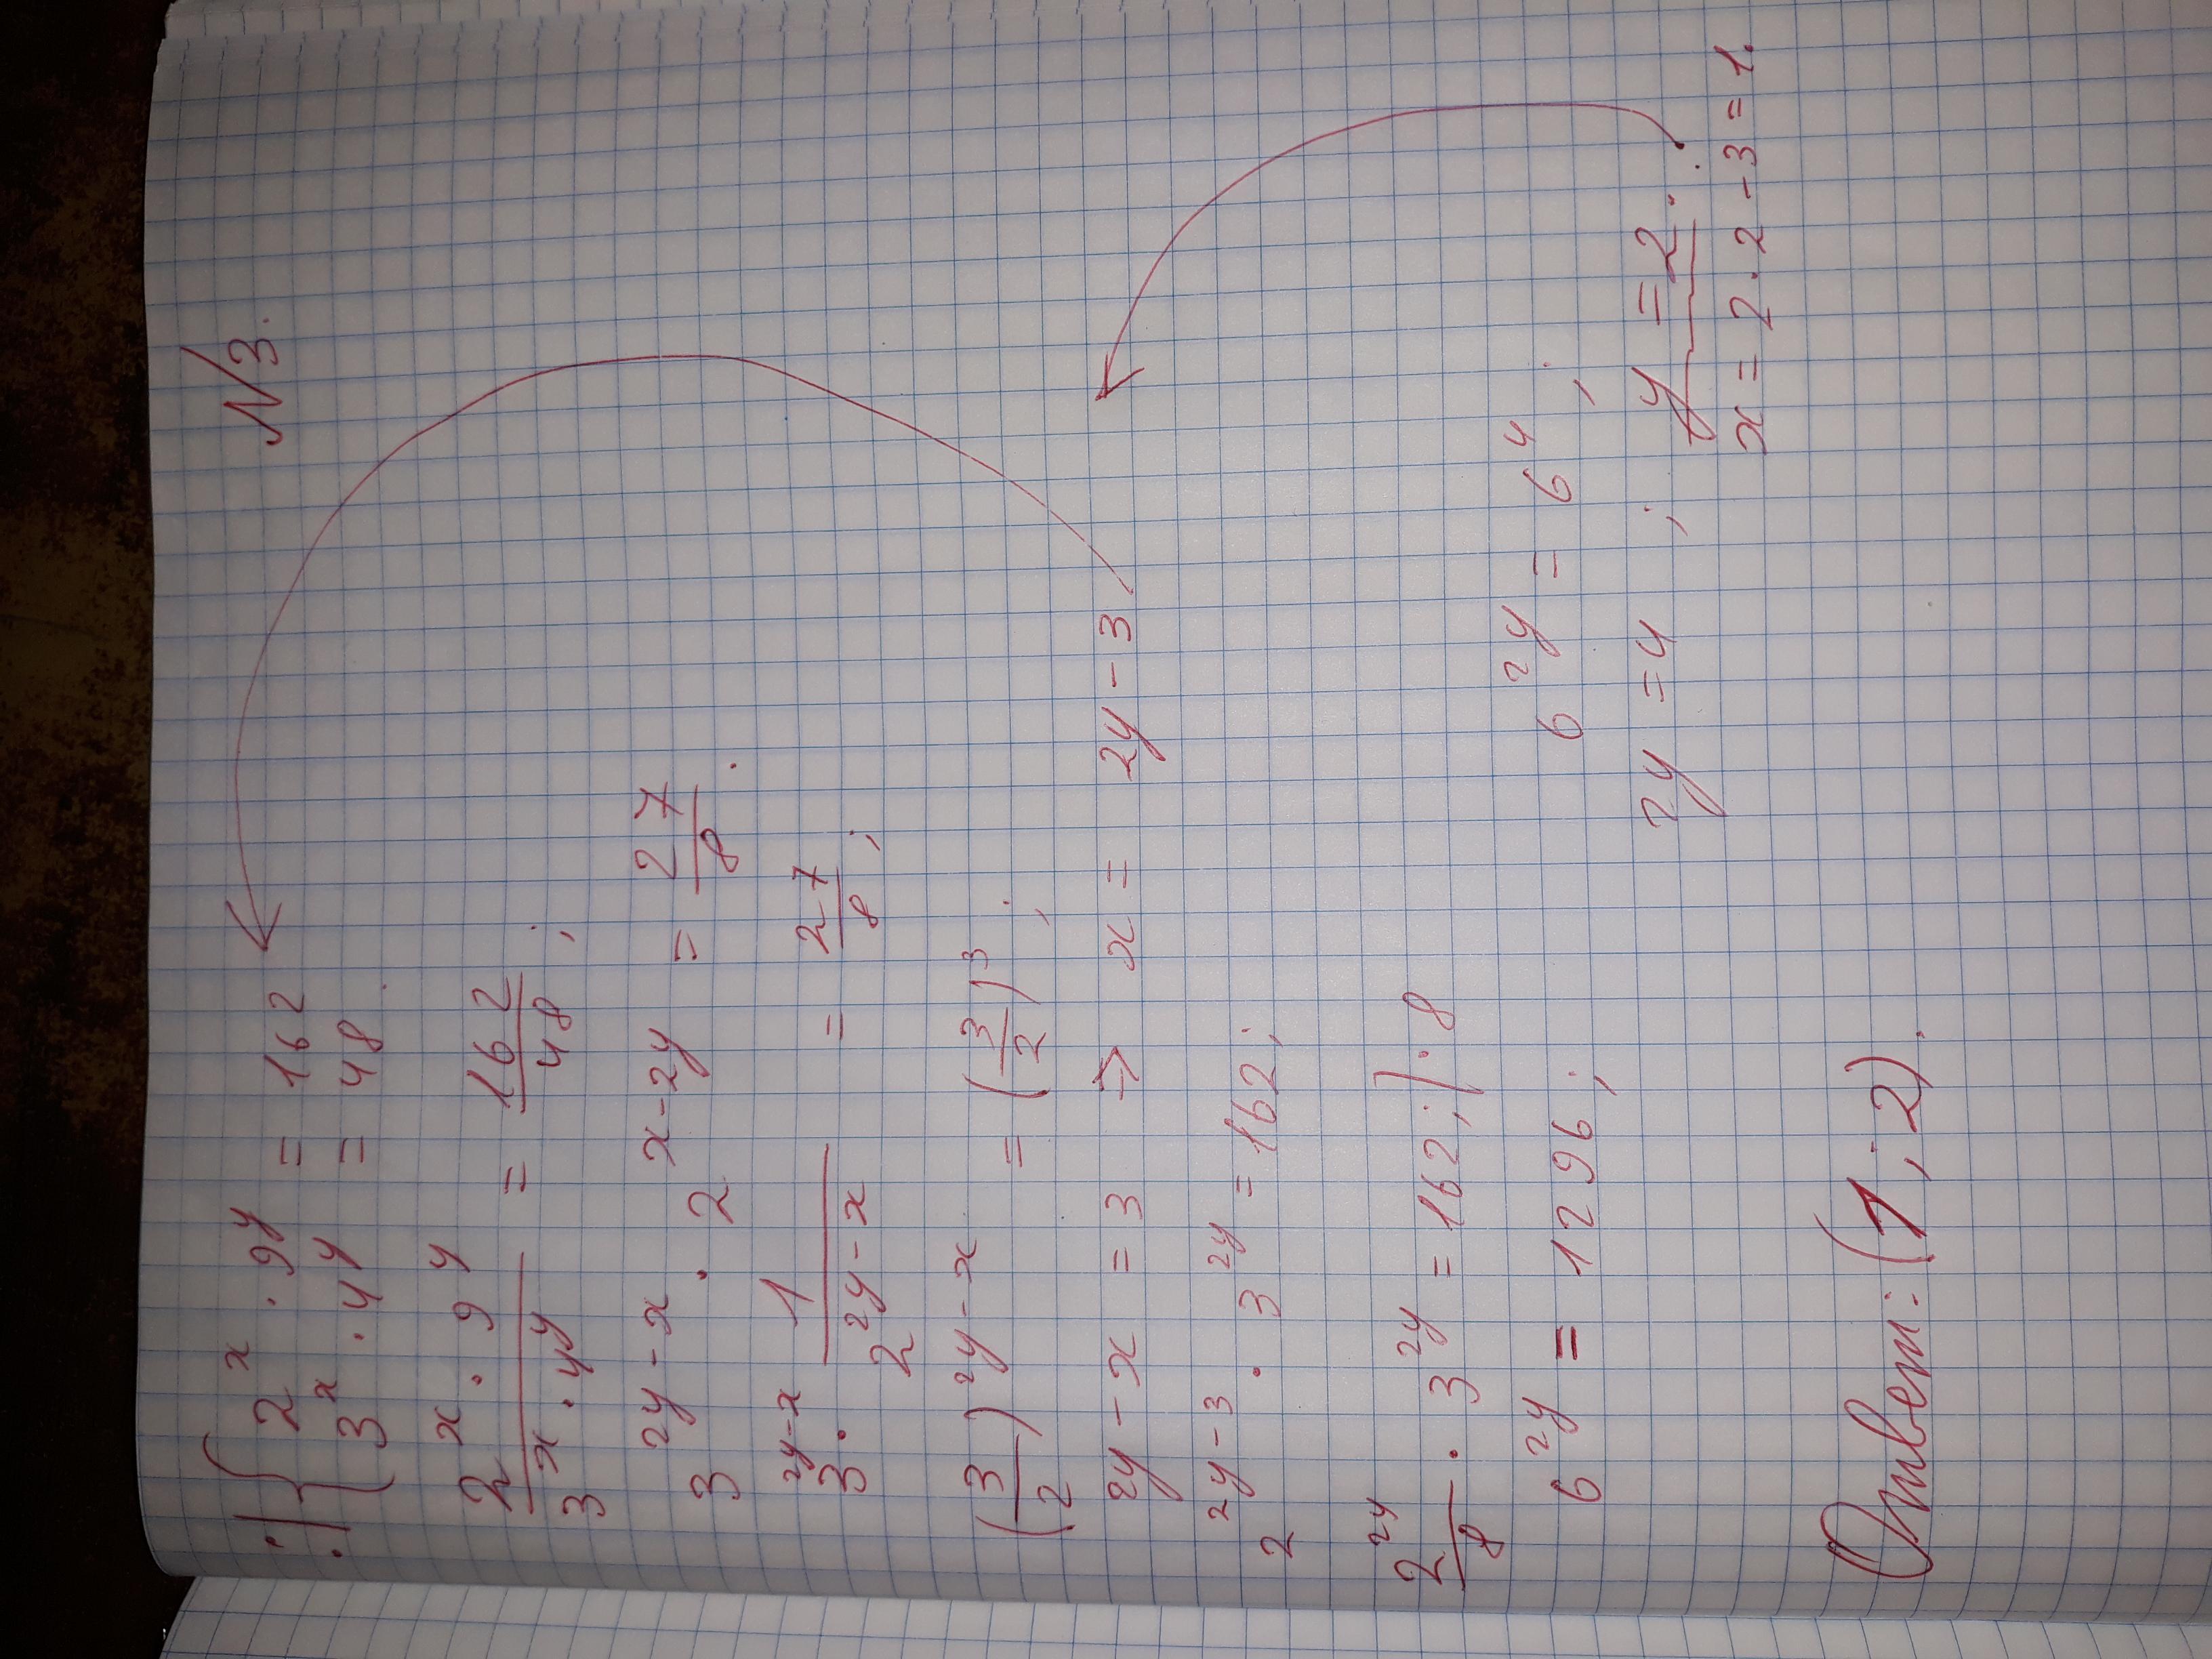 №3.
:| { 2^x · 9^y = 162
3^x · 4^y = 48
(2^x · 9^y)/(3^x · 4^y) = 162/48;
3^(2y-x) · 2^(x-2y) = 27/8.
3^(2y-x) · 1/2^(2y-x) = 27/8;
(3/2)^(2y-x) = (3/2)^3;
2y - x = 3 → x = 2y - 3
2^(2y-3) · 3^(2y) = 162;
2^(2y)/8 · 3^(2y) = 162; | · 8
6^(2y) = 1296; 6^(2y) = 6^4;
2y = 4; y = 2.
x = 2 · 2 - 3 = 1.
Ответ: (1; 2).